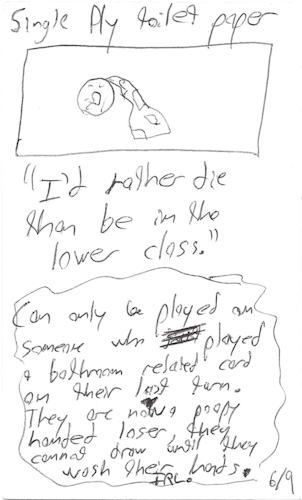 Single Ply toilet paper
"I'd rather die
than be in the
lower class."
Can only be played on
someone who played
a bathroom related card
on their last turn.
They are now a poopy
handed loser they
cannot draw until they
wash their hands
IRL.
6/9